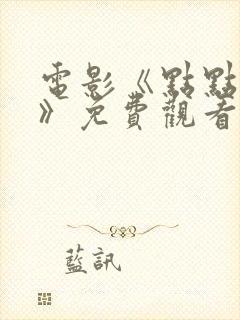 電影《點點
》免費觀看
藍訊